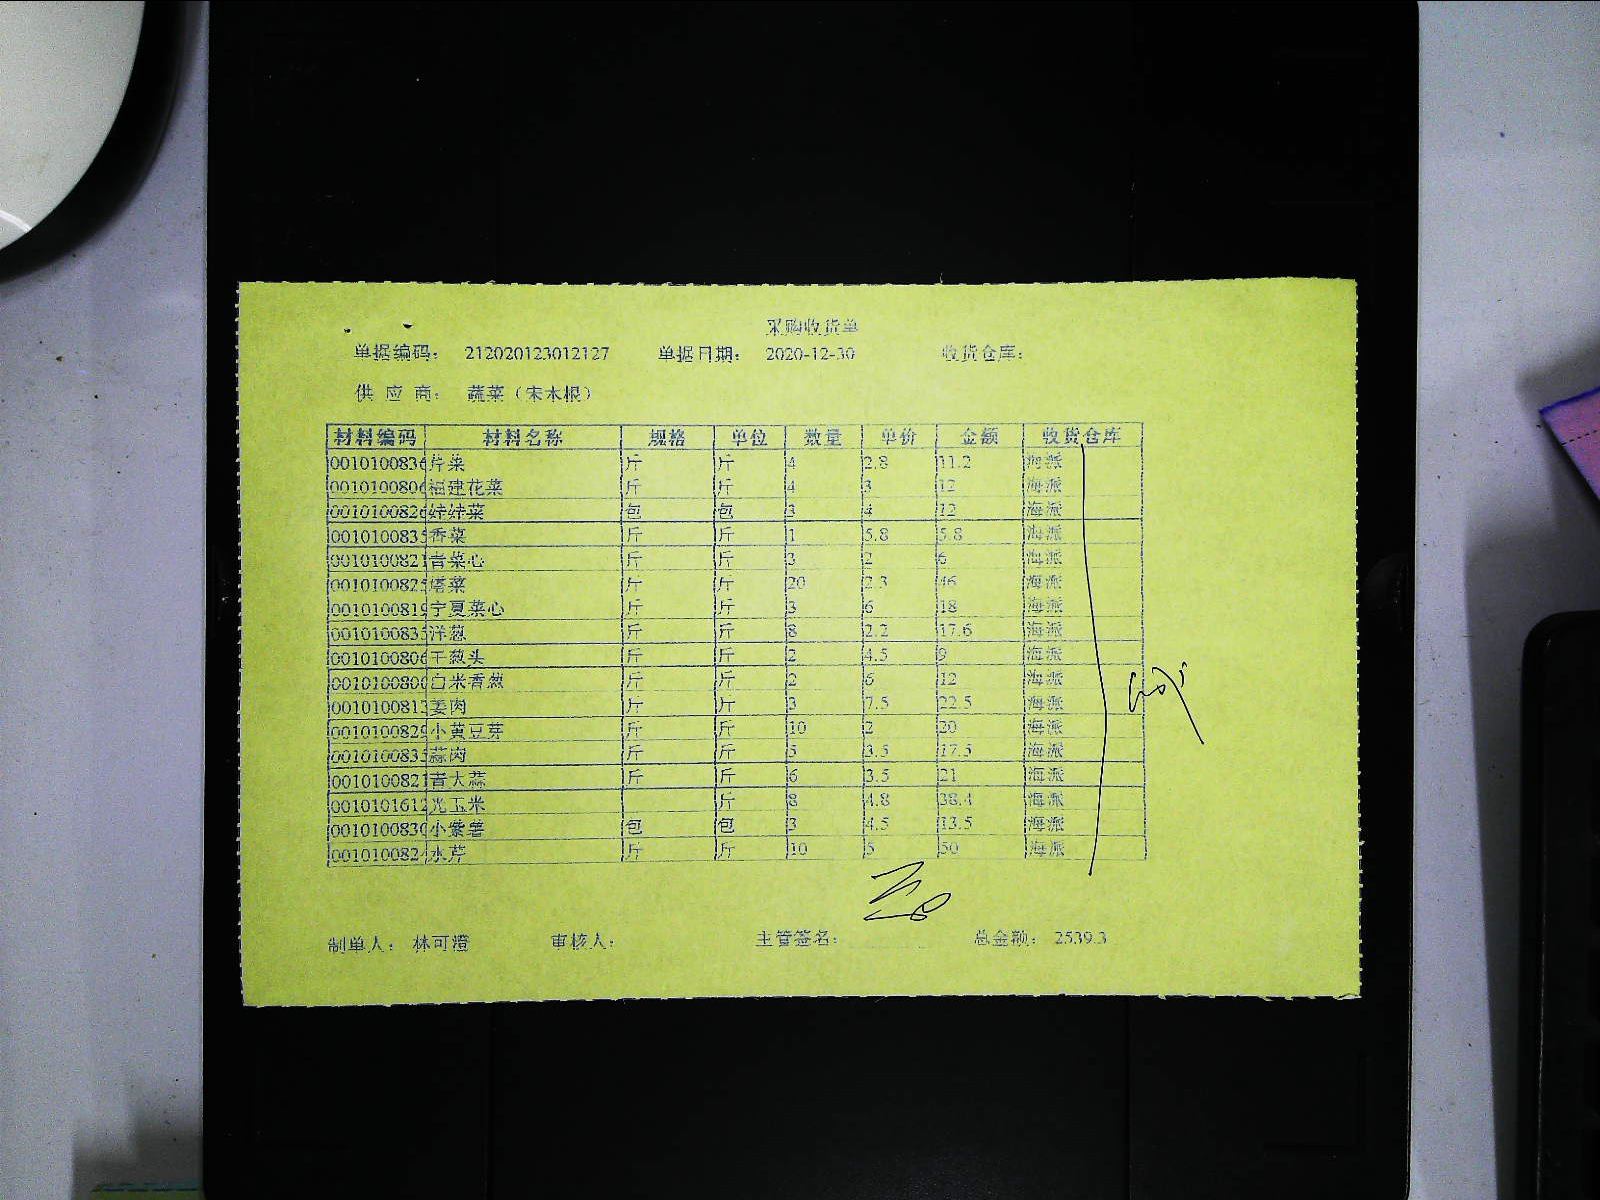 采购收货单
单据编码： 212020123012127 单据日期： 2020-12-30 收货仓库：
供 应 商： 蔬菜（宋木根）
材料编码 材料名称 规格 单位 数量 单价 金额 收货仓库
0010100836 芹菜 斤 斤 4 2.8 11.2 海派
0010100806 福建花菜 斤 斤 4 3 12 海派
0010100826 娃娃菜 包 包 3 4 12 海派
0010100835 香菜 斤 斤 1 5.8 5.8 海派
0010100821 青菜心 斤 斤 3 2 6 海派
0010100825 塔菜 斤 斤 20 2.3 46 海派
0010100819 宁夏菜心 斤 斤 3 6 18 海派
0010100835 洋葱 斤 斤 8 2.2 17.6 海派
0010100806 干葱头 斤 斤 2 4.5 9 海派
0010100800 白米香葱 斤 斤 2 6 12 海派
0010100813 姜肉 斤 斤 3 7.5 22.5 海派
0010100829 小黄豆芽 斤 斤 10 2 20 海派
0010100835 蒜肉 斤 斤 5 3.5 17.5 海派
0010100821 青大蒜 斤 斤 6 3.5 21 海派
0010101612 光玉米 斤 8 4.8 38.4 海派
0010100830 小紫薯 包 包 3 4.5 13.5 海派
001010082 水芹 斤 斤 10 5 50 海派
制单人： 林可澄 审核人： 主管签名： 总金额： 2539.3